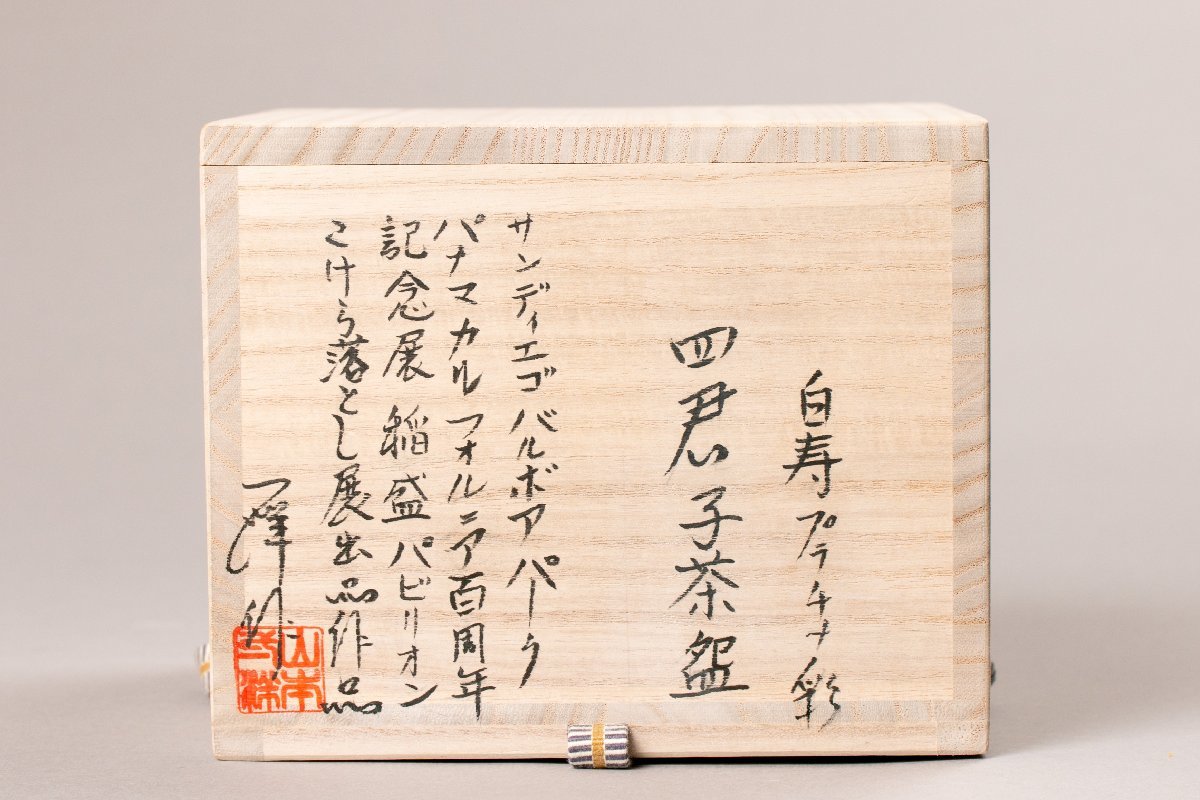 白寿プラチナ彩
四君子茶盌
サンディエゴバルボアパーク
パナマカルフォルニア百周年
記念展 稲盛パビリオン
こけら落とし展出品作品
山本